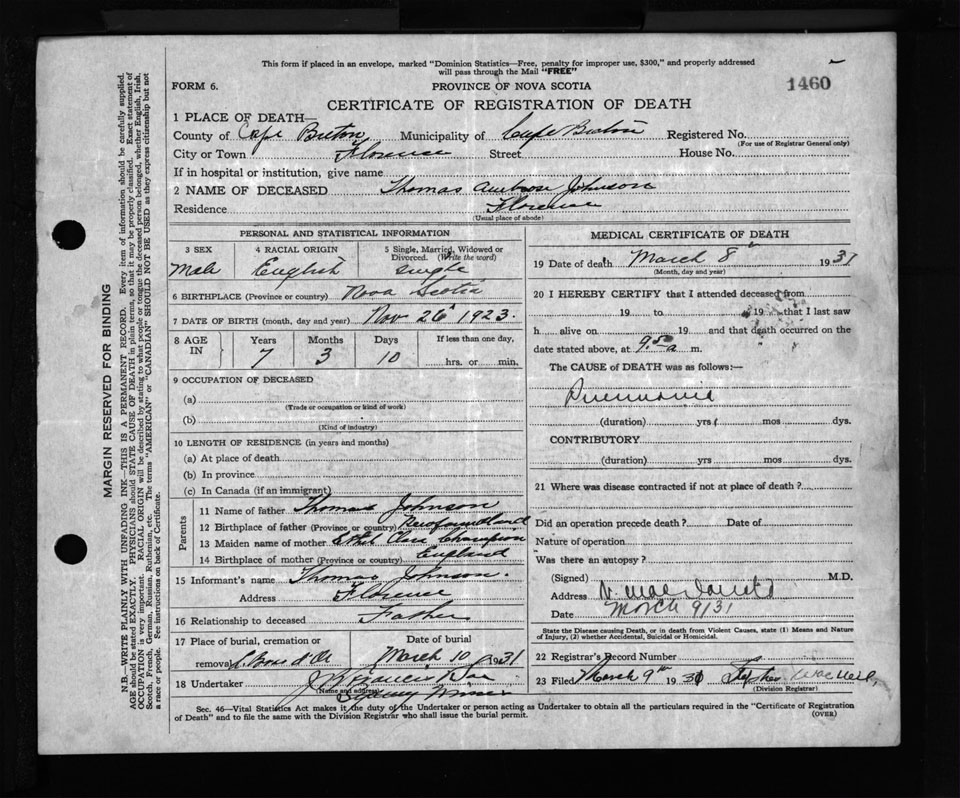 This form if placed in an envelope, marked "Dominion Statistics—Free, penalty for improper use, $300," and properly addressed
will pass through the Mail "FREE"
1460
FORM 6.
PROVINCE OF NOVA SCOTIA
CERTIFICATE OF REGISTRATION OF DEATH
1 PLACE OF DEATH—
County of Cape Breton Municipality of Cape Breton Registered No.
(For use of Registrar General only)
City or Town Florence Street House No.
If in hospital or institution, give name
2 NAME OF DECEASED Thomas Ambrose Johnson
Residence Florence
(Usual place of abode)
PERSONAL AND STATISTICAL INFORMATION
3 SEX 4 RACIAL ORIGIN 5 Single, Married, Widowed or
Divorced. (Write the word)
Male English single
6 BIRTHPLACE (Province or country) Nova Scotia
7 DATE OF BIRTH (month, day and year) Nov 26 1923.
8 AGE IN Years Months Days If less than one day,
7 3 10 hrs. or min.
9 OCCUPATION OF DECEASED
(a)
(Trade or occupation or kind of work)
(b)
(Kind of industry)
10 LENGTH OF RESIDENCE (in years and months)
(a) At place of death
(b) In province
(c) In Canada (if an immigrant)
Parents
11 Name of father Thomas Johnson
12 Birthplace of father (Province or country) Newfoundland
13 Maiden name of mother Ethel Champion
14 Birthplace of mother (Province or country) England
15 Informant's name Thomas Johnson.
Address Florence
16 Relationship to deceased Father
17 Place of burial, cremation or Date of burial
removal March 10 1931
18 Undertaker
(Name and address)
Sydney Mines
MEDICAL CERTIFICATE OF DEATH
19 Date of death March 8 1931
(Month, day and year)
20 I HEREBY CERTIFY that I attended deceased from
19 to 19 that I last saw
h alive on 19 and that death occurred on
date stated above, at 9.50 a m.
The CAUSE of DEATH was as follows:—
Pneumonia
(duration) yrs mos dys.
CONTRIBUTORY
(duration) yrs mos dys.
21 Where was disease contracted if not at place of death?
Did an operation precede death? Date of
Nature of operation
Was there an autopsy?
(Signed) M.D.
Address
Date March 9/31
State the Disease causing Death, or in death from Violent Causes, state (1) Means and Nature
of Injury, (2) whether Accidental, Suicidal or Homicidal.
22 Registrar's Record Number
23 Filed March 9th 1931 Stephen MacNeil,
(Division Registrar)
Sec. 46—Vital Statistics Act makes it the duty of the Undertaker or person acting as Undertaker to obtain all the particulars required in the "Certificate of Registration
of Death" and to file the same with the Division Registrar who shall issue the burial permit.
(OVER)
MARGIN RESERVED FOR BINDING
N.B.—WRITE PLAINLY WITH UNFADING INK—THIS IS A PERMANENT RECORD. Every item of information should be carefully supplied.
AGE should be stated EXACTLY. PHYSICIANS should STATE CAUSE OF DEATH in plain terms, so that it may be properly classified. Exact statement of
OCCUPATION is very important. RACIAL ORIGIN will be described by stating to what people or tongue the deceased person belonged, whether English, Irish,
Scotch, French, German, Russian, Ruthenian, etc. The terms "AMERICAN" or "CANADIAN" SHOULD NOT BE USED as they express citizenship but not
a race or people. See instructions on back of Certificate.